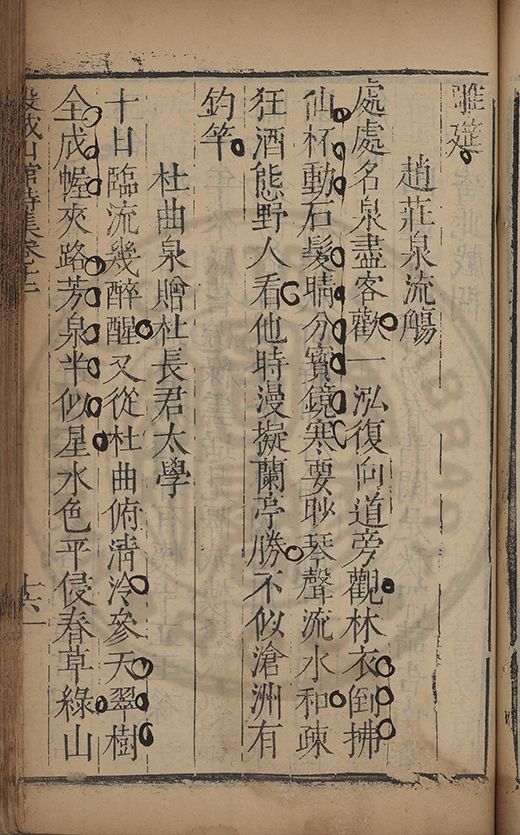 誰筵
趙莊泉流觴
處處名泉盡客歡一泓復向道旁觀林衣倒拂
仙杯動石髮睛分寳鏡寒要聆琴聲流水和疎
狂酒態野人看他時漫擬蘭亭勝不似滄洲有
釣竿
杜曲泉贈杜長君太學
十日臨流幾醉醒又從杜曲俯清泠參天翠樹
全成幄夾路芳泉半似星水色平侵春草綠山
山館詩集卷十二
十六